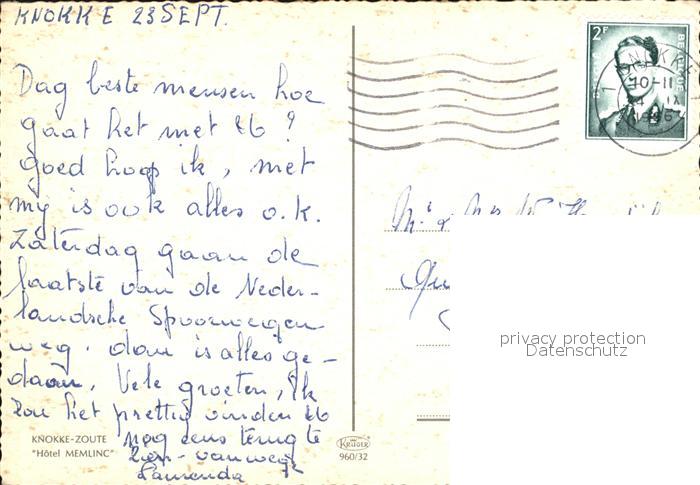 KNOKKE 23 SEPT.
Dag beste mensen hoe
gaat het met U ?
goed hoop ik, met
my is ook alles o.k.
Zaterdag gaan de
laatste van de Neder-
landsche Spoorwegen
weg. dan is alles ge-
daan. Vele groeten, ik
zou het prettig vinden U
nog eens terug te
zien - vanwege
KNOKKE-ZOUTE
"Hôtel MEMLINC"
KRÜGER
960/32
2F
BELGIQUE
KNOKKE
10-11
IX
privacy protection
Datenschutz